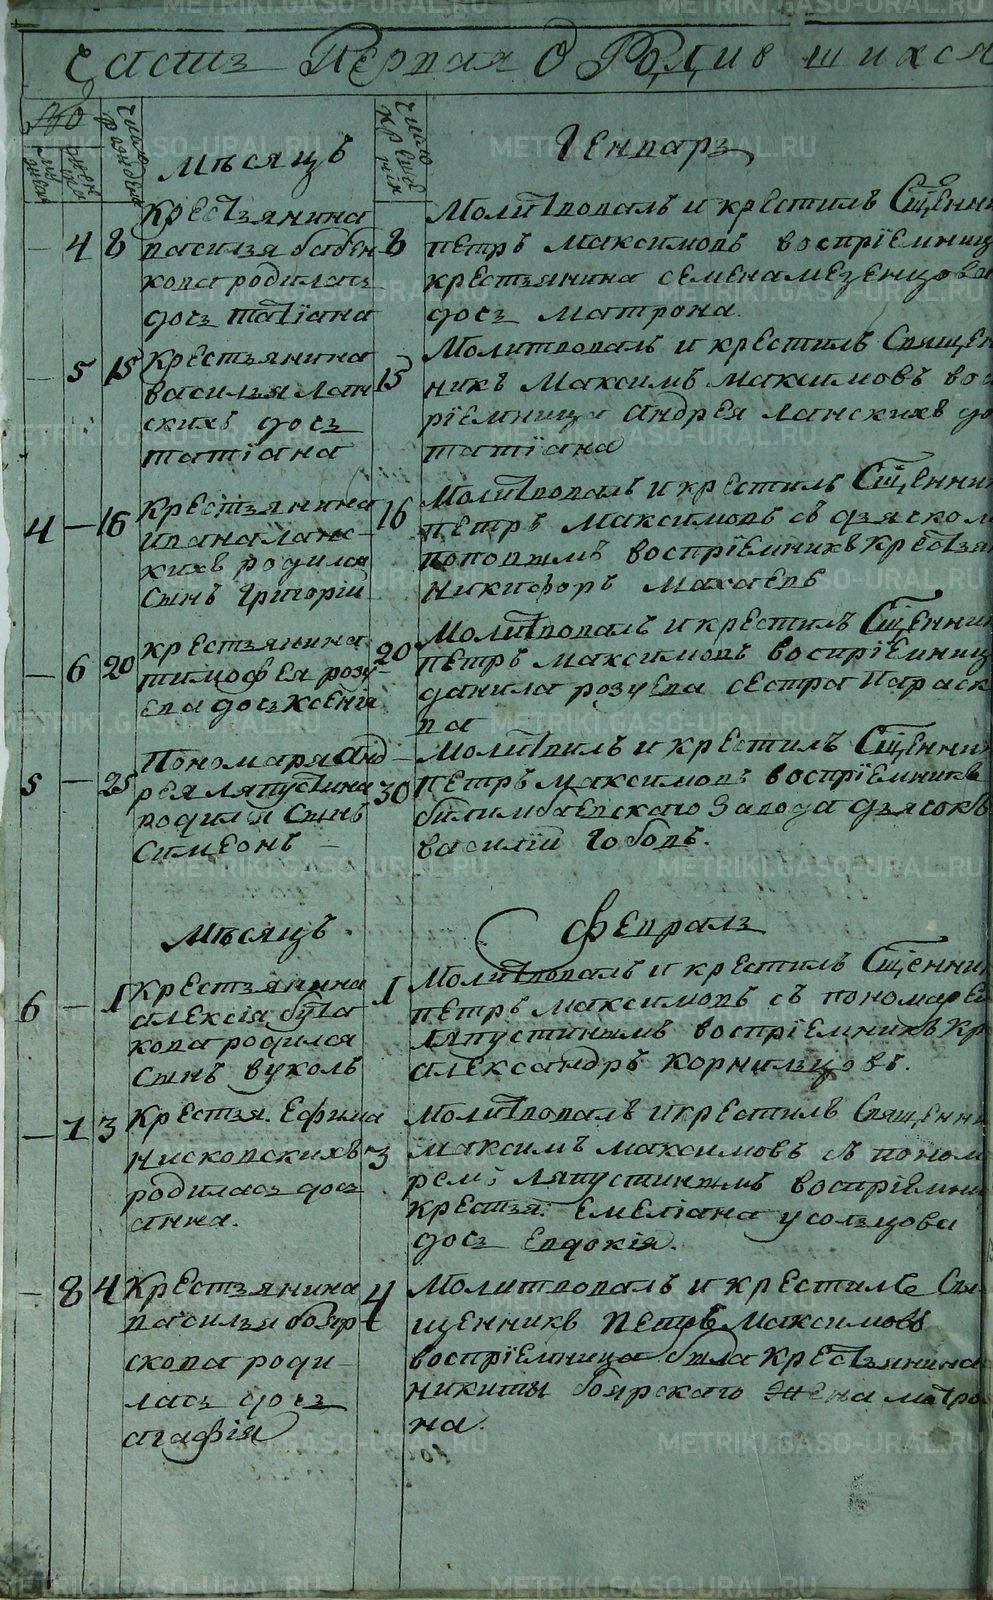 Часть Первая О Родившихся
Мѣсяцъ
Генварь
число рождения
число крещения
4 8 Крестьянина
василья бабен
кова родилась
дочь татїана
8 Молитвовалъ и крестилъ Сщ҃енни
петръ максимовъ воспрїемниц
крестьянина семена мезенцова
дочь матрона.
5 15 Крестьянина
василья лан
скихъ дочь
татїана
15 Молитвовалъ и крестилъ Священ
никъ Максимъ максимовъ вос
рїемница андрея ланскихъ до
татїана
4 — 16 Крестьянина
ивана ланс
кихъ родился
сынъ Григорїй
16 Молитвовалъ и крестилъ Сщ҃енни
петръ максимовъ съ дьячком
поповымъ воспрїемникъ крестья
никифоръ махаевъ
6 20 крестьянина
тимофея розу
ева дочь ксенїя
20 Молитвовалъ и крестилъ Сщ҃енни
петръ максимовъ воспрїемниц
данила розуева сестра Параск
ва
5 — 25 Пономаря анд
рея ляпустина
родился сынъ
Симеонъ
30 Молитвилъ и крестилъ Сщ҃енни
петръ максимовъ воспрїемникъ
билимбаевскаго завода дьячокъ
василїй
Мѣсяцъ
февраль
6 — 1 Крестьянина
алексїя
кова родился
сынъ вуколъ
1 Молитвовалъ и крестилъ Сщ҃енни
петръ максимовъ съ пономаре
ляпустинымъ воспрїемникъ кр
александръ корнильцовъ.
7 3 Крестья. Ефима
нисковскихъ
родилась дочь
анна.
3 Молитвовалъ и крестилъ Священни
максимъ максимовъ съ поном
рем; ляпустинымъ воспрїемни
крестья: емелїана усольцова
дочь евдокїя.
8 4 Крестьянина
василья бояр
скова роди
лась дочь
агафїя
4 Молитвовалъ и крестилъ Свя
щенникъ петръ максимовъ
воспрїемница была крестьянина
никиты боярскаго жена матро
на.
METRIKI.GASO-URAL.RU